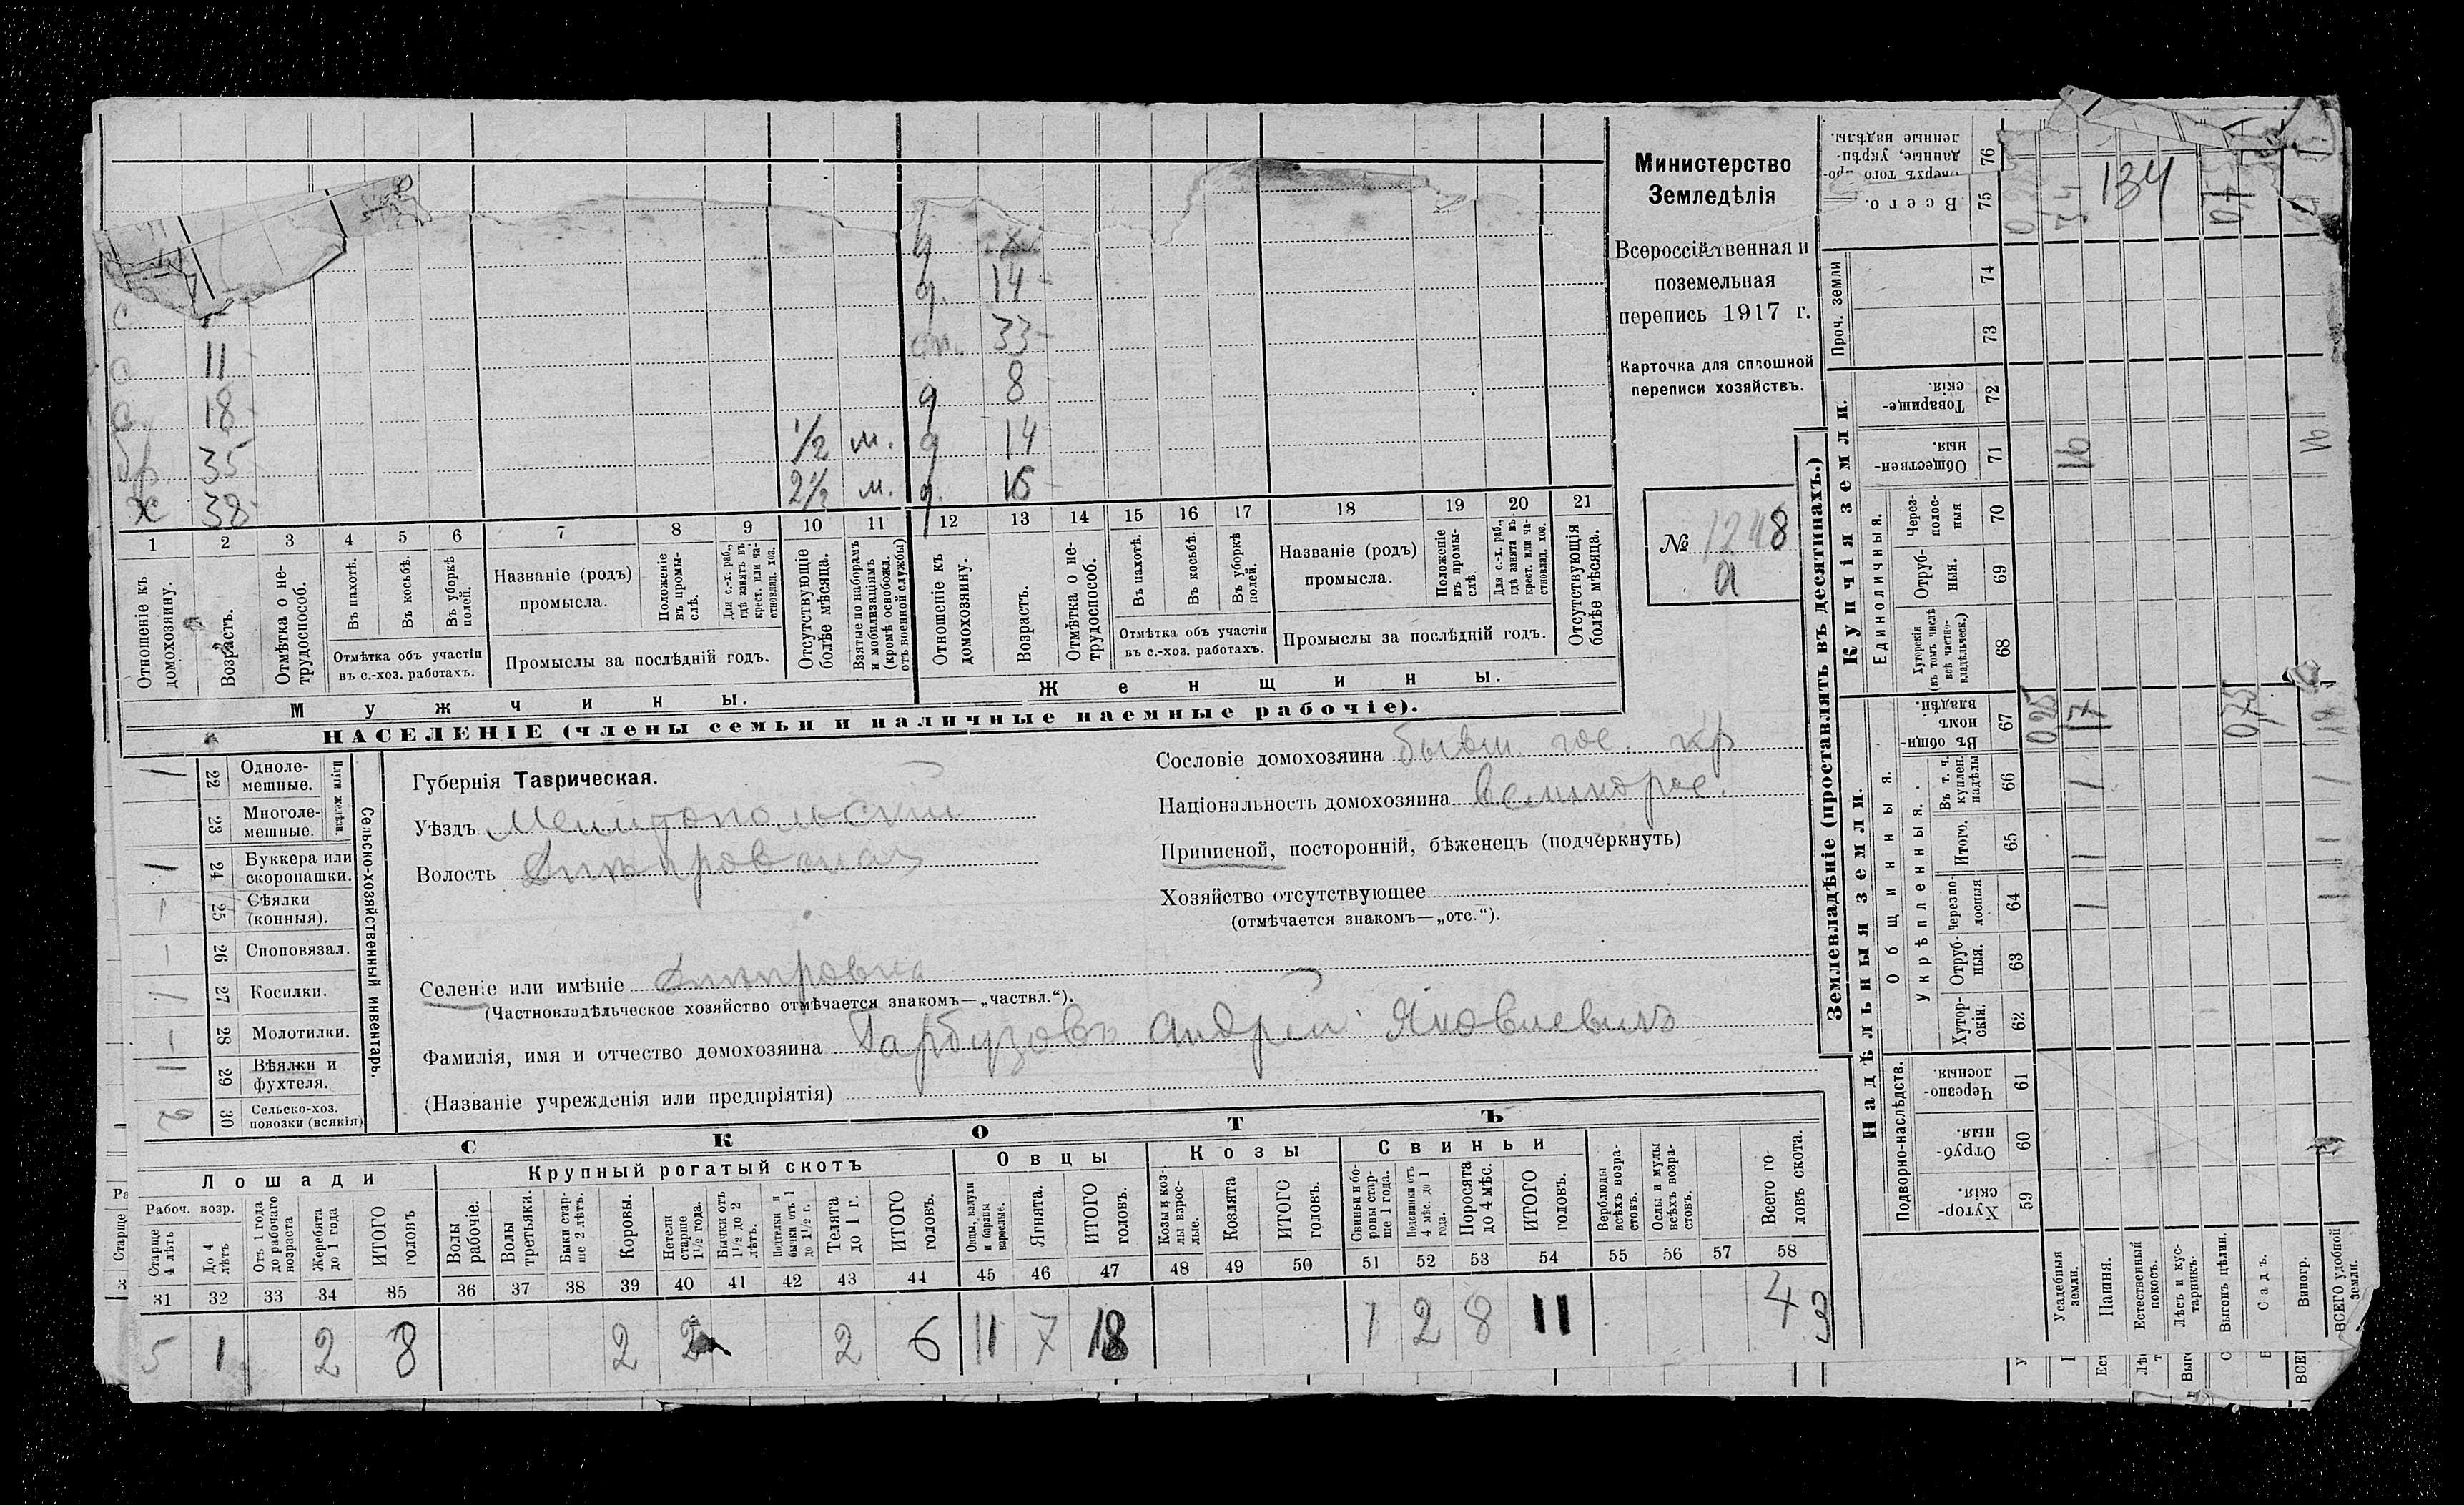 Министерство
Земледѣлія
поземельная
перепись 1917 г.
Карточка для сплошной
переписи хозяйствъ.
№ 1248
а
q
q. 14 -
с 33 -
с 11 - q 8 -
с 18 - 1/2 м. q 14
бр 35 2 1/2 м. q. 16 -
х 38 -
1 2 3 4 5 6 7 8 9 10 11 12 13 14 15 16 17 18 19 20 21
Отношеніе къ домохозяину.
Возрастъ.
Отмѣтка о не-трудоспособ.
Въ пахотѣ.
Въ косьбѣ.
Въ уборкѣ полей.
Отмѣтка объ участіи
въ с.-хоз. работахъ.
Названіе (родъ)
промысла.
Положеніе въ промы-слѣ.
Для с.-х. раб., гдѣ занятъ въ крест. или ча-стновлад. хоз.
Промыслы за послѣдній годъ.
Отсутствующіе болѣе мѣсяца.
Взятые по наборамъ и мобилизаціямъ (кромѣ освобожд. отъ военной службы)
Отношеніе къ домохозяину.
Возрастъ.
Отмѣтка о не-трудоспособ.
Въ пахотѣ.
Въ косьбѣ.
Въ уборкѣ полей.
Отмѣтка объ участіи
въ с.-хоз. работахъ.
Названіе (родъ)
промысла.
Положеніе въ промы-слѣ.
Для с.-х. раб., гдѣ занята въ крест. или ча-стновлад. хоз.
Промыслы за послѣдній годъ.
Отсутствующія болѣе мѣсяца.
Мужчины.
Женщины.
НАСЕЛЕНІЕ (члены семьи и наличные наемные рабочіе).
Сельско-хозяйственный инвентарь.
Плуги желѣзн.
1 22 Одноле-мешные.
23 Многоле-мешные.
1 24 Буккера или скоропашки.
1 25 Сѣялки (конныя).
1 26 Сноповязал.
1 27 Косилки.
1 28 Молотилки.
1 29 Вѣялки и фухтеля.
2 30 Сельско-хоз. повозки (всякія)
Губернія Таврическая.
Уѣздъ Мелитопольскій
Волость Днѣпровская
Селеніе или имѣніе Днѣпровка
(Частновладѣльческое хозяйство отмѣчается знакомъ—„частвл.“).
Фамилія, имя и отчество домохозяина Гарбузовъ Андрей Яковлевичъ
(Названіе учрежденія или предпріятія)
Сословіе домохозяина бывш. гос. кр
Національность домохозяина великорос.
Приписной, посторонній, бѣженецъ (подчеркнуть)
Хозяйство отсутствующее
(отмѣчается знакомъ—„отс.“).
СКОТЪ
Лошади
Крупный рогатый скотъ
Овцы
Козы
Свиньи
Рабоч. возр.
Старше 4 лѣтъ
До 4 лѣтъ
Отъ 1 года до рабочаго возраста
Жеребята до 1 года
ИТОГО головъ
Волы рабочіе.
Волы третьяки.
Быки стар-ше 2 лѣтъ.
Коровы.
Нетели старше 1 1/2 года.
Бычки отъ 1 1/2 до 2 лѣтъ.
Подтелки и бычки отъ 1 до 1 1/2 г.
Телята до 1 г.
ИТОГО головъ.
Овцы, валухи и бараны взрослые.
Ягнята.
ИТОГО головъ.
Козы и коз-лы взрос-лые.
Козлята
ИТОГО головъ.
Свиньи и бо-ровы стар-ше 1 года.
Подсвинки отъ 4 мѣс. до 1 года.
Поросята до 4 мѣс.
ИТОГО головъ.
Верблюды всѣхъ возра-стовъ.
Ослы и мулы всѣхъ возра-стовъ.
Всего го-ловъ скота.
31 32 33 34 35 36 37 38 39 40 41 42 43 44 45 46 47 48 49 50 51 52 53 54 55 56 57 58
5 1 2 8 2 2 2 6 11 7 18 1 2 8 11 43
Землевладѣніе (проставлять въ десятинахъ.)
Надѣльныя земли.
Купчія земли.
Проч. земли
Подворно-наслѣдств.
Общинныя.
Укрѣпленныя.
Единоличныя.
Всего. 75
76
74
73
Товарище-скія. 72
Обществен-ныя. 71
Через-полос-ныя 70
Отруб-ныя. 69
Хуторскія (въ томъ числѣ всѣ частно-владѣльческ.) 68
Въ общи-номъ владѣн. 67
Въ т. ч. куплен. надѣлы 66
Итого. 65
Черезпо-лосныя 64
Отруб-ныя. 63
Хутор-скія. 62
Черезпо-лосныя. 61
Отруб-ныя. 60
Хутор-скія. 59
Усадебныя земли.
Пашня.
Естественный покосъ.
Лѣсъ и кус-тарникъ.
Выгонъ цѣлин.
Садъ.
Виногр.
ВСЕГО удобной земли.
134
16
16
025
17
075